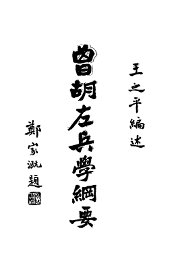 王之平編述
曾胡左兵學綱要
鄭家溉題